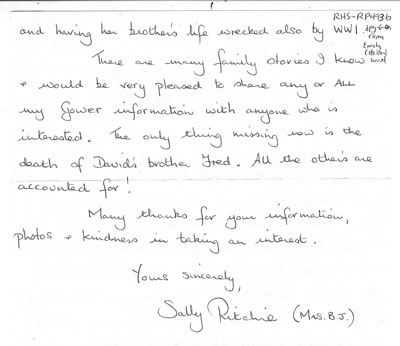 RHS-RP4936
and having her brother's life wrecked also by WW1.
There are many family stories I know
& would be very pleased to share any or ALL
my Gower information with anyone who is
interested. The only thing missing now is the
death of David's brother Fred. All the others are
accounted for!
Many thanks for your information,
photos & kindness in taking an interest.
Yours sincerely,
Sally Ritchie (Mrs. B.J.)